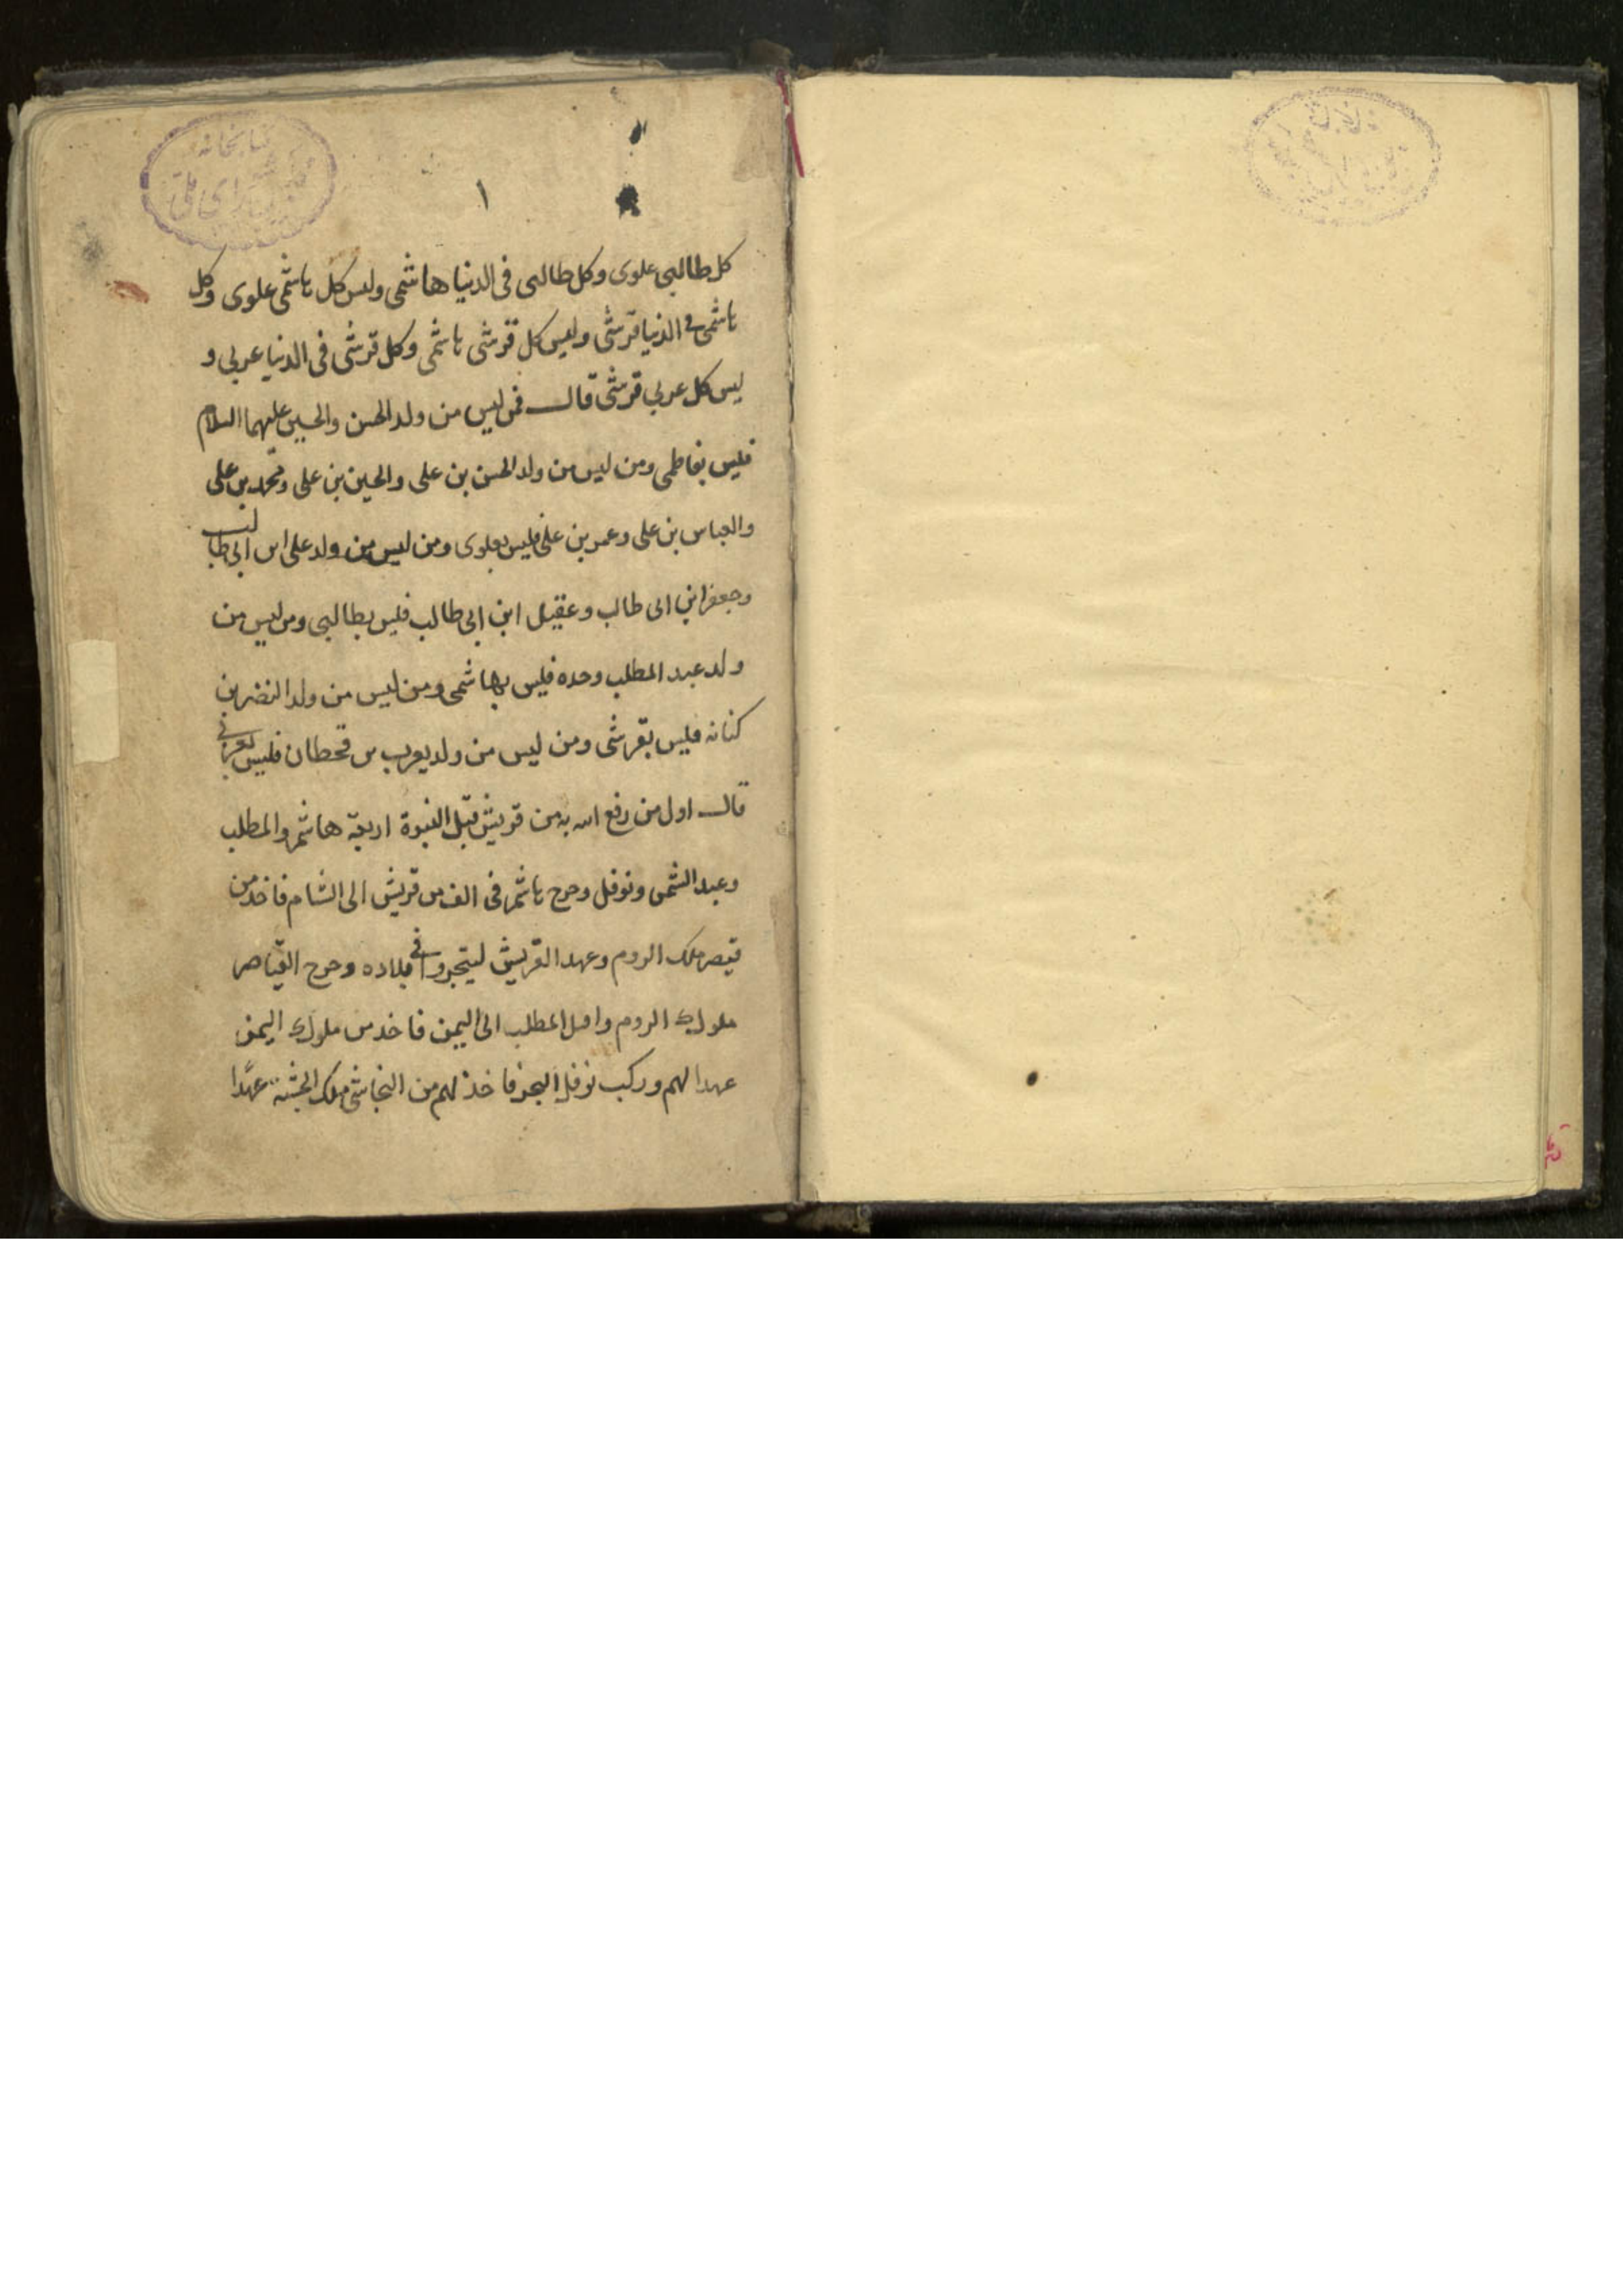 ١
كل طالبى علوى وكل طالبى فى الدنيا هاشمى وليس كل هاشمى علوى وكل
هاشمى فى الدنيا قرشى وليس كل قرشى هاشمى وكل قرشى فى الدنيا عربى و
ليس كل عربى قرشى قال فمن ليس من ولد الحسن والحسين عليهما السلام
فليس بفاطمى ومن ليس من ولد الحسن بن على والحسين بن على ومحمد بن على
والعباس بن على وعمر بن على فليس بعلوى ومن ليس من ولد على ابن ابى طالب
وجعفر ابن ابى طالب وعقيل ابن ابى طالب فليس بطالبى ومن ليس من
ولد عبد المطلب وحده فليس بهاشمى ومن ليس من ولد النضر بن
كنانه فليس بقرشى ومن ليس من ولد يعرب بن قحطان فليس بعربى
قال اول من رفع الله به من قريش قبل النبوة اربعة هاشم والمطلب
وعبد الشمس ونوفل وخرج هاشم فى الف من قريش الى الشام فاخذ من
قيصر ملك الروم وعهد القريش ليتجروا فى بلاده وخرج القياصر
ملوك الروم واقبل المطلب الى اليمن فاخذ من ملوك اليمن
عهدا لهم وركب نوفل البحر فاخذ لهم من النجاشى ملك الحبشة عهدا
كتابخانه